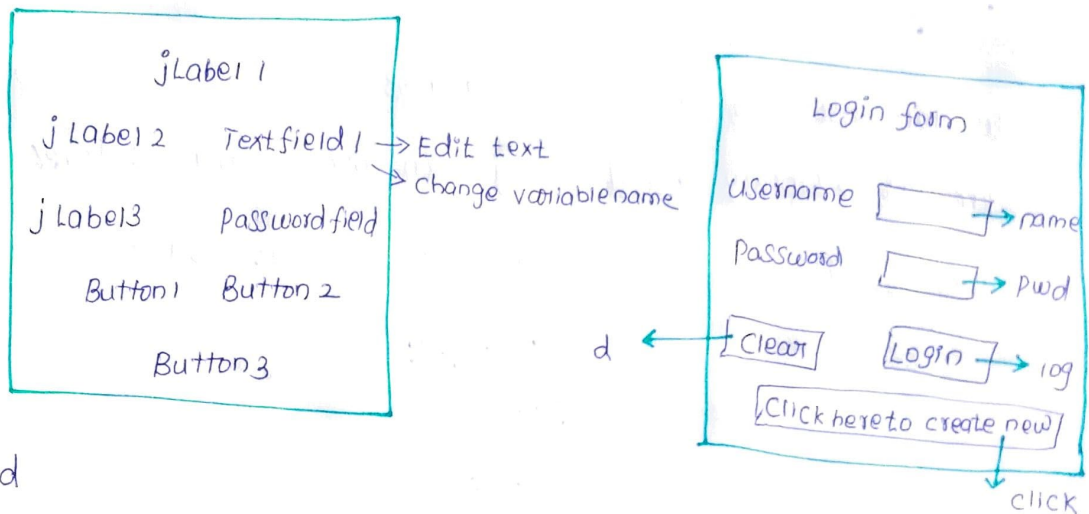 jLabel 1
jLabel 2 Textfield 1 → Edit text
→ change variablename
jLabel3 Passwordfield
Button1 Button 2
Button3
d
Login form
username → name
Password → pwd
d ← Clear Login → log
Click here to create new
click